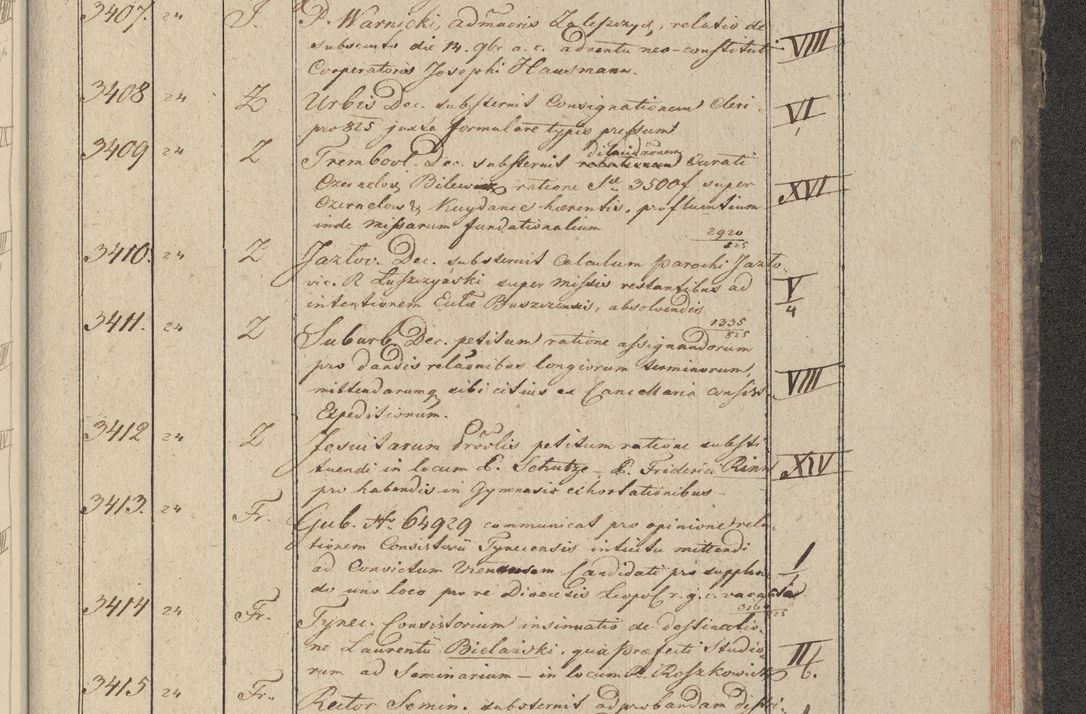 3407. 24 J. P. Warnicki, admãoris Zaleszczyc, relatio de
subsecuto die 14. 9br. a. c. adventu neo-constituti VIII
Cooperatoris Josephi Hausmann.
3408 24 Z Urbis Dec. substernit Consignationem Cleri VI
pro 825 juxta formulare typis pressum
3409 24 Z Trembowl. Dec. substernit Curati
Czernelow Bilewicz ratione 3500f super XVI
Czernelow & Kuydance haerentis, profluentium
inde Missarum fundationalium
2920
825
3410. 24 Z Jazlov. Dec. substernit Calculum Parochi Jazlo-
vic. R. Łuszczyński super Missis restantibus ad V
4
intentionem Buszczensis, absolvendis
1335
825
3411. 24 Z Suburb. Dec. petitum ratione assignandorum
pro dandis relãonibus longiorum terminorum, VIII
mittendarumq sibi citius ex Cancellaria
Expeditionum.
3412 24 Z Jesuitarum petitum ratione substi-
tuendi in locum P. Schutze – P. Friderici Rinn XIV
pro habendis in Gymnasio exhortationibus –
3413. 24 Fr. Gub. No 64929 communicat pro opinione rela-
tionem Consistorii Tynecensis intuitu mittendi I
ad Convictum Candidati pro supplen-
do uno loco pro re Dioecesis Leopol r. g. c.
3414 24 Fr. Tynec. Consistorium insinuatio de destinatio-
ne Laurentii Bielański, qua Praefecti Studio- II
rum ad Seminarium – in locum R. Roszkowski 6.
3415 24 Fr. Rector Semin. substernit adprobandam